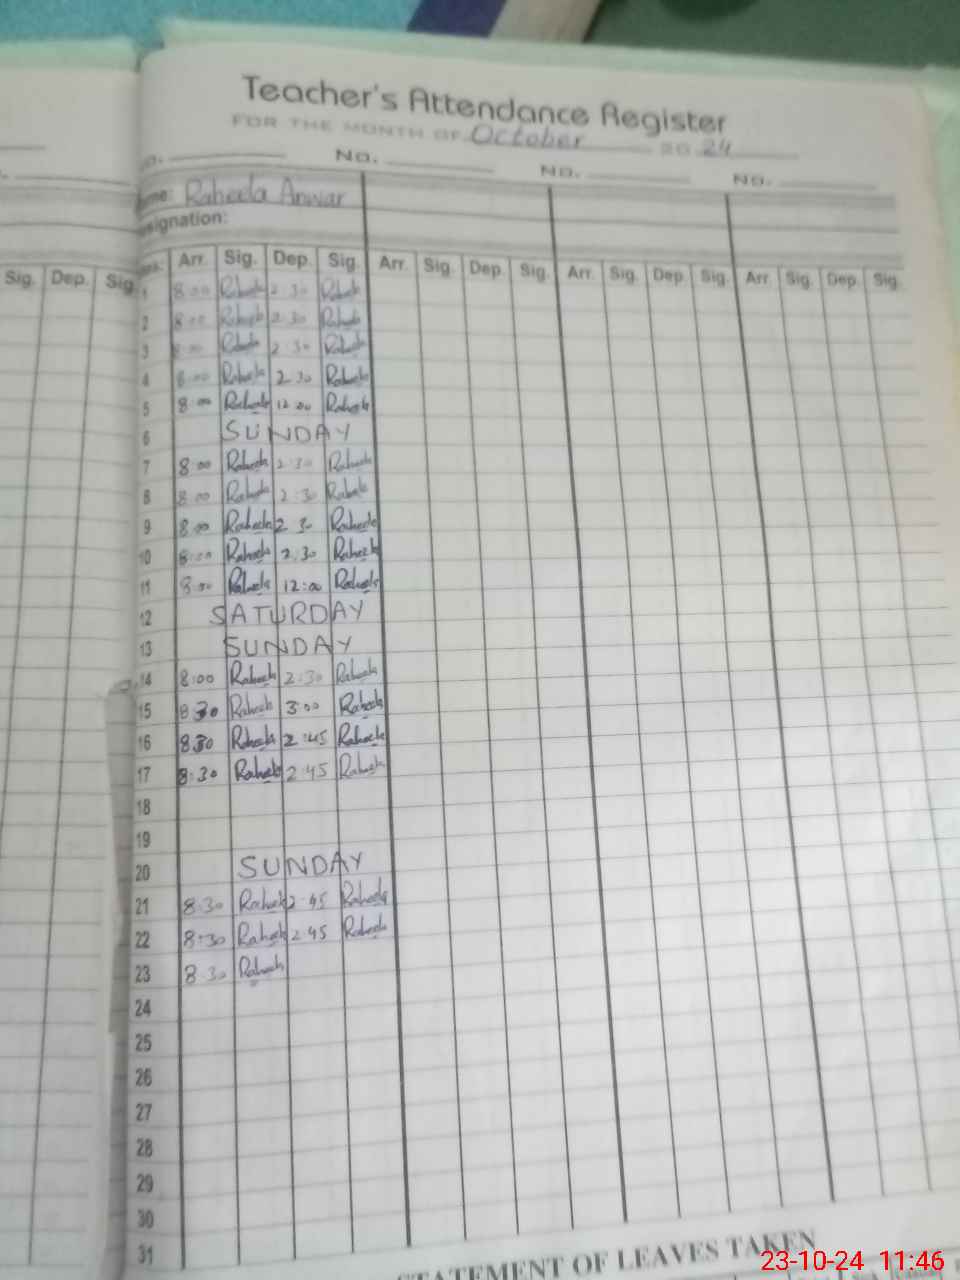 Teacher's Attendance Register
FOR THE MONTH OF October 20 24
No. No. No.
Name: Raheela Anwar
signation:
Sig. Dep. Sig. Arr. Sig. Dep. Sig. Arr. Sig. Dep. Sig. Arr. Sig. Dep. Sig. Arr. Sig. Dep. Sig.
1 8:00 Raheela 2:30 Raheela
2 8:00 Raheela 2:30 Raheela
3 8:00 Raheela 2:30 Raheela
4 8:00 Raheela 2:30 Raheela
5 8:00 Raheela 12:00 Raheela
6 SUNDAY
7 8:00 Raheela 2:30 Raheela
8 8:00 Raheela 2:30 Raheela
9 8:00 Raheela 2:30 Raheela
10 8:00 Raheela 2:30 Raheela
11 8:00 Raheela 12:00 Raheela
12 SATURDAY
13 SUNDAY
14 8:00 Raheela 2:30 Raheela
15 8:30 Raheela 3:00 Raheela
16 8:30 Raheela 2:45 Raheela
17 8:30 Raheela 2:45 Raheela
18
19
20 SUNDAY
21 8:30 Raheela 2:45 Raheela
22 8:30 Raheela 2:45 Raheela
23 8:30 Raheela
24
25
26
27
28
29
30
31
STATEMENT OF LEAVES TAKEN
23-10-24 11:46